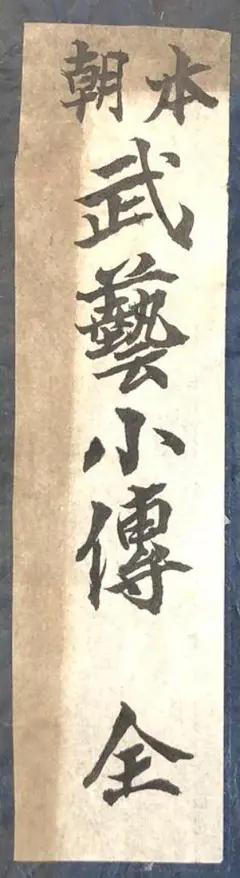 本朝
武藝小傳 全